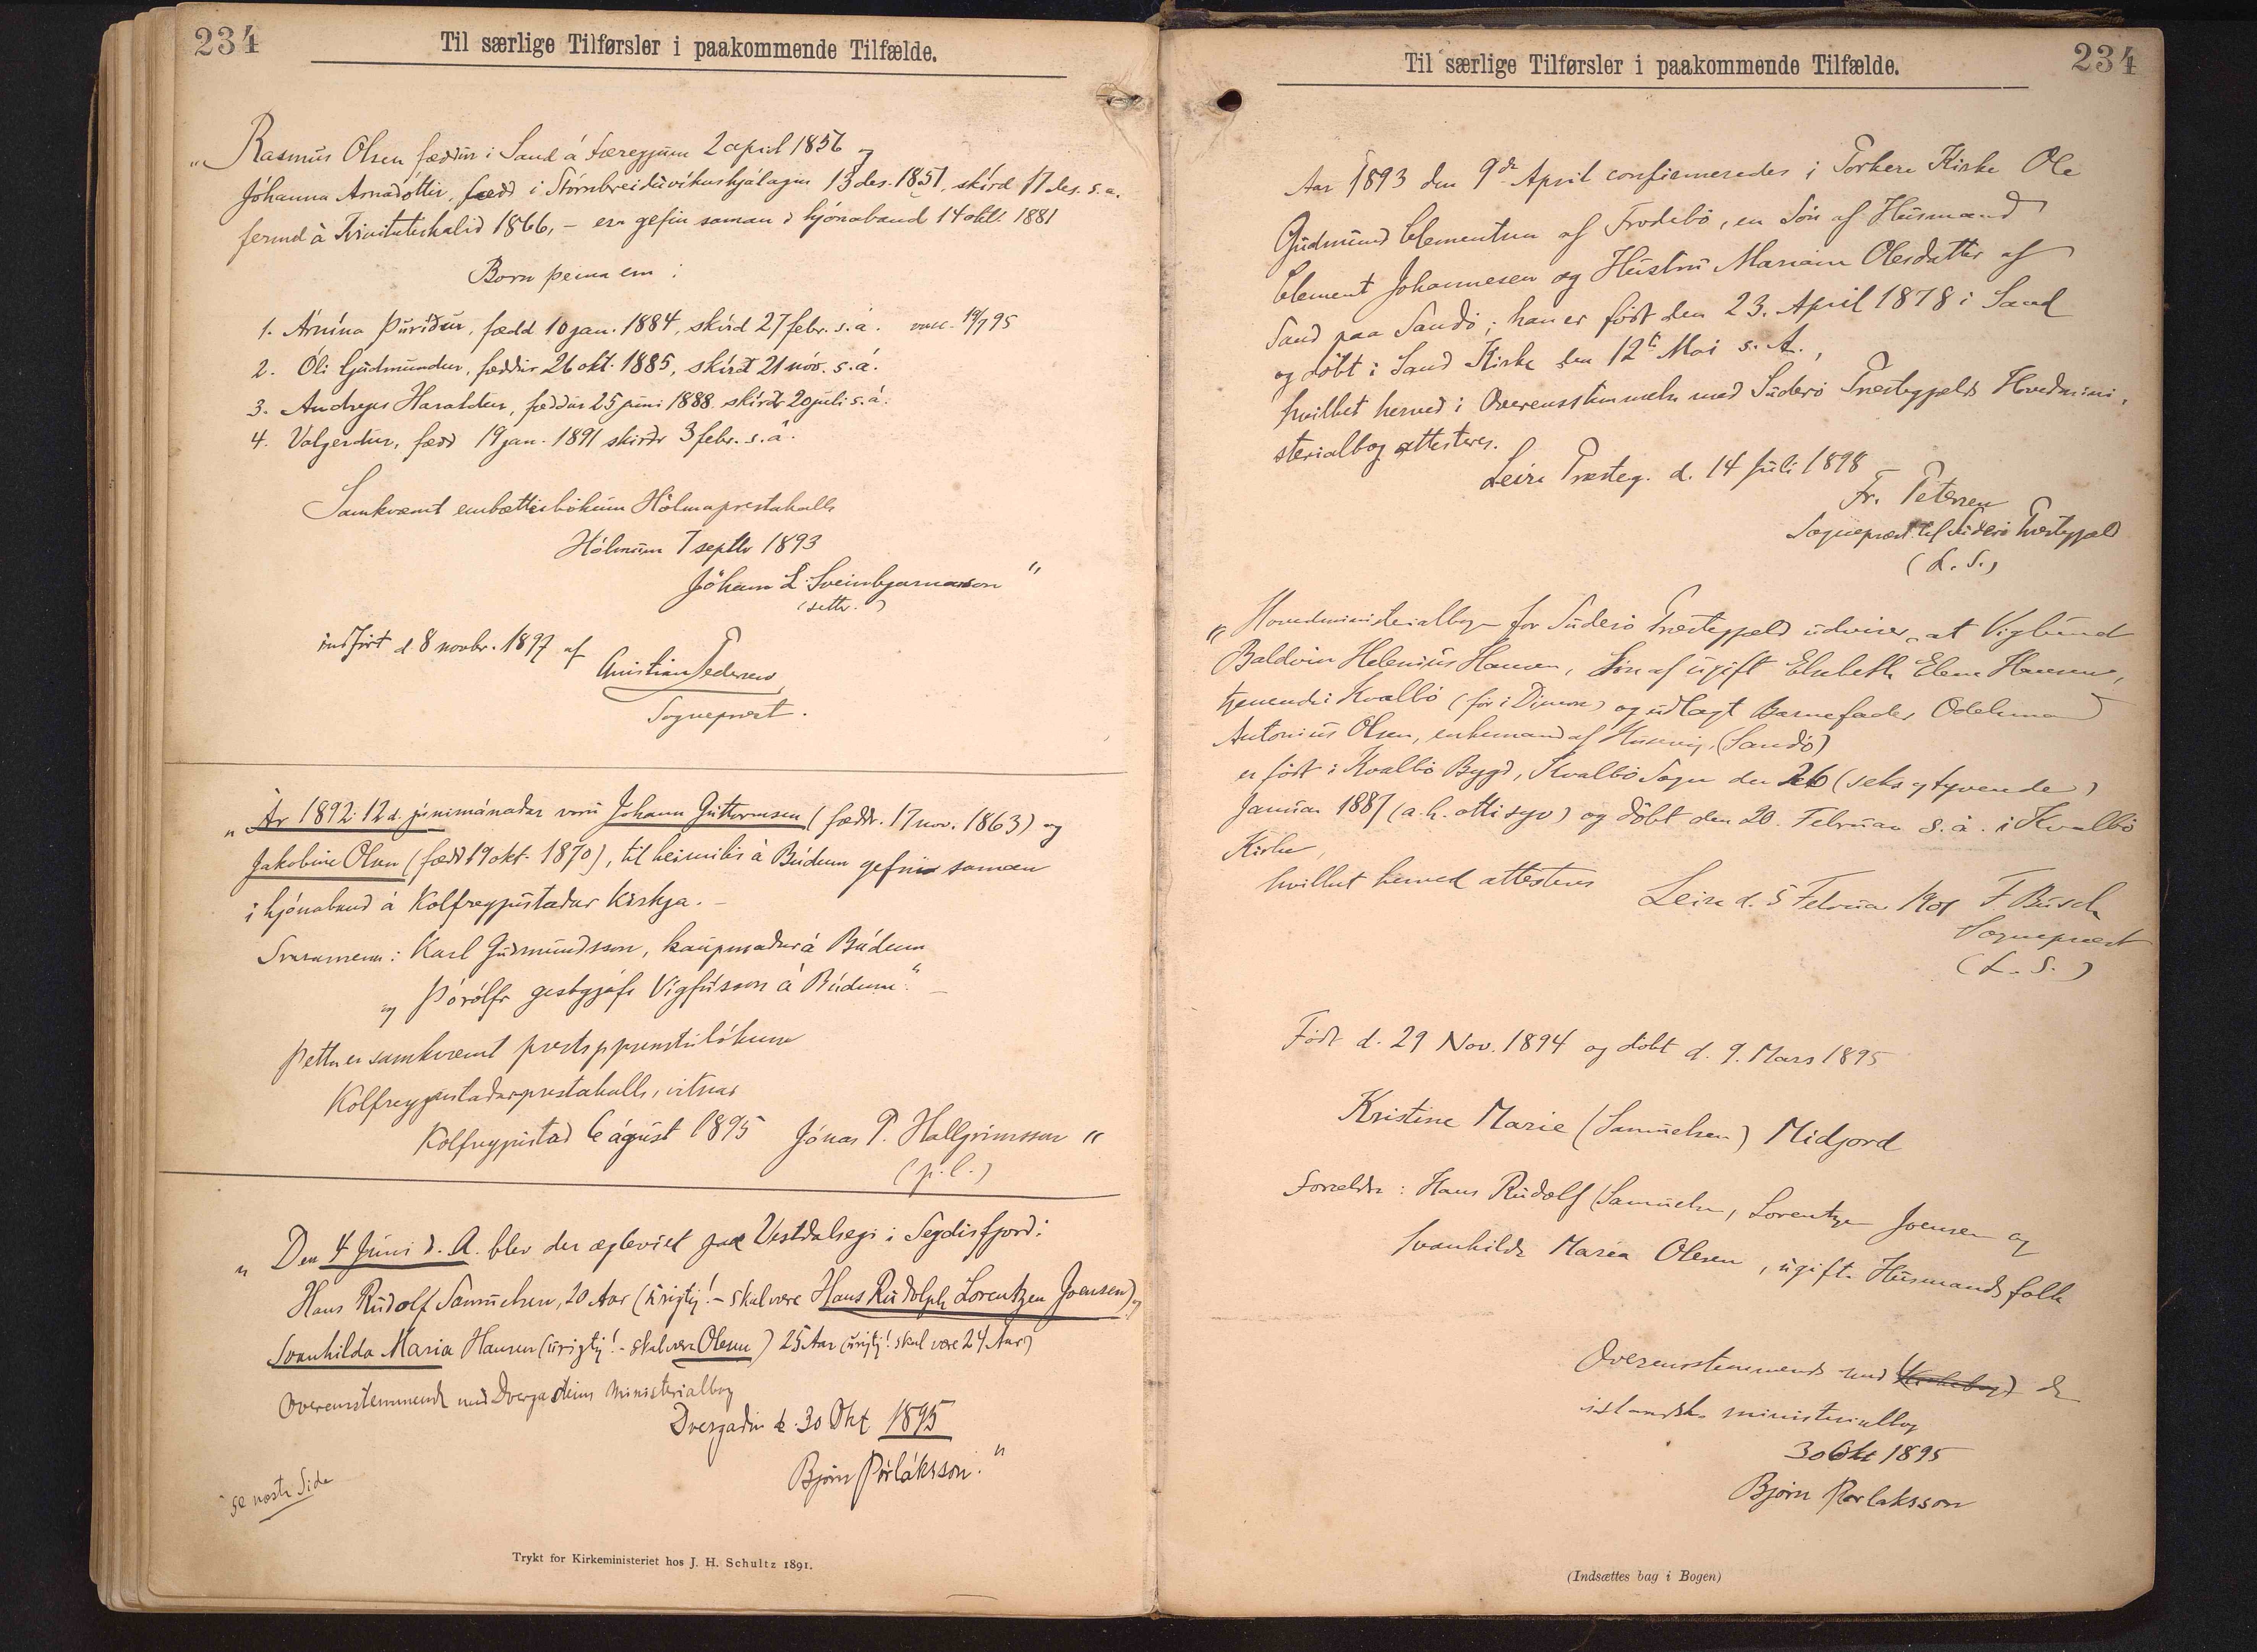 234
Til særlige Tilførsler i paakommende Tilfælde.
"Rasmus Olsen fæddur i Sand á Færeyjum 2 april 1856 og
Jóhanna Arnadóttir, fædd i Stórubreiduvikurhjálagu 13 des. 1851, skírd 17 des. s.a.
fermd á Trinitatishatid 1866, - eru gefin saman i hjónaband 14 okt. 1881
Born þeirra eru:
1. Árnína Þúridur, fædd 10 jan. 1884, skírd 27 febr. s.á. vacc. 19/7 95
2. Óli Gudmundur, fæddur 26 okt. 1885, skírdr 21 nóv. s.á.
3. Andreas Haraldur, fæddur 25 júni 1888 skírdr 20 júli s.á.
4. Valgerdur, fædd 19 jan. 1891 skirdr 3 febr. s.á.
Samkvæmt embættisbókum Hólmaprestakalls
Hólmum 7 septbr 1893
Jóhann L. Sveinbjarnarson"
(settr.)
indført d 8 novbr. 1897 af
Christian Pedersen
Sognepræst.
"Ár 1892 12 d. júnimánadar voru Johann Guttormsen (fæddr. 17 nov. 1863) og
Jakobine Olsen (fædd 19 okt. 1870), til heimilis á Búdum gefin saman
i hjónaband á Kolfreyjustadar Kirkja. -
Svaramenn: Karl Gudmundsson, kaupmadur á Búdum
og Þórólfr gestgjafi Vigfússon á Búdum". -
Þetta er samkvæmt prestsþjonustubókum
Kolfreyjustadarprestakalls, vitnar
Kolfreyjustad 6 ágúst 1895 Jónas P. Hallgrimsson"
(p.l.)
"Den 4 Juni d. A. blev der ægteviet paa Vestdalseyri i Seydisfjord:
Hans Rudolf Samuelsen, 20 Aar (urigtig! - skal være Hans Rudolph Lorentzen Joensen) og
Svanhilda Maria Hansen (urigtig! - skal være Olesen) 25 Aar (urigtig! skal være 24 Aar)
Overensstemmende med Dvergasteins Ministerialbog
Dvergastein d. 30 Okt 1895
Bjørn Þorláksson."
se næste Side
Trykt for Kirkeministeriet hos J. H. Schultz 1891.
Til særlige Tilførsler i paakommende Tilfælde.
234
Aar 1893 den 9de April confirmeredes i Porkere Kirke Ole
Gudmund Clementsen af Frodebö, en Sön af Husmand
Clement Johannesen og Hustru Mariane Olesdatter af
Sand paa Sandö; han er född den 23. April 1878 i Sand
og döbt i Sand Kirke den 12te Mai s. A.,
hvilket herved i Overensstemmelse med Suderö Præstegjælds Hovedmini-
sterialbog attesteres.
Leire Præsteg. d. 14 Juli 1898
Fr. Petersen
Sognepræst til Suderö Præstegjæld
(L.S.)
"Hovedministerialbogen for Suderö Præstegjæld udviser, at Viglund
Baldvin Helenius Hansen, Sön af ugift Elsebeth Elene Hansen,
tjenende i Kvalbö (för i Dimon) og udlagt Barnefader Odelsmand
Antonius Olsen, enkemand af Husevig (Sandö)
er född i Kvalbö Bygd, Kvalbö Sogn den 26 (seks og tyvende)
Januar 1887 (a.h. otti syv) og döbt den 20. Februar s.a. i Kvalbö
Kirke,
hvilket herved attesteres
Leire d. 5 Februar 1901 F. Busch
Sognepræst
(L.S.)
Född d. 29 Nov. 1894 og döbt d. 9. Mars 1895
Kristine Marie (Samuelsen) Midjord
Forældre: Hans Rudolf (Samuelsen, Lorentzen Joensen og
Svanhilda Maria Olesen, ugifte Husmandsfolk
Overensstemmende med (Kirkebog) den
islandske ministerialbog
30 Okt 1895
Bjørn Þorlaksson
(Indsættes bag i Bogen)